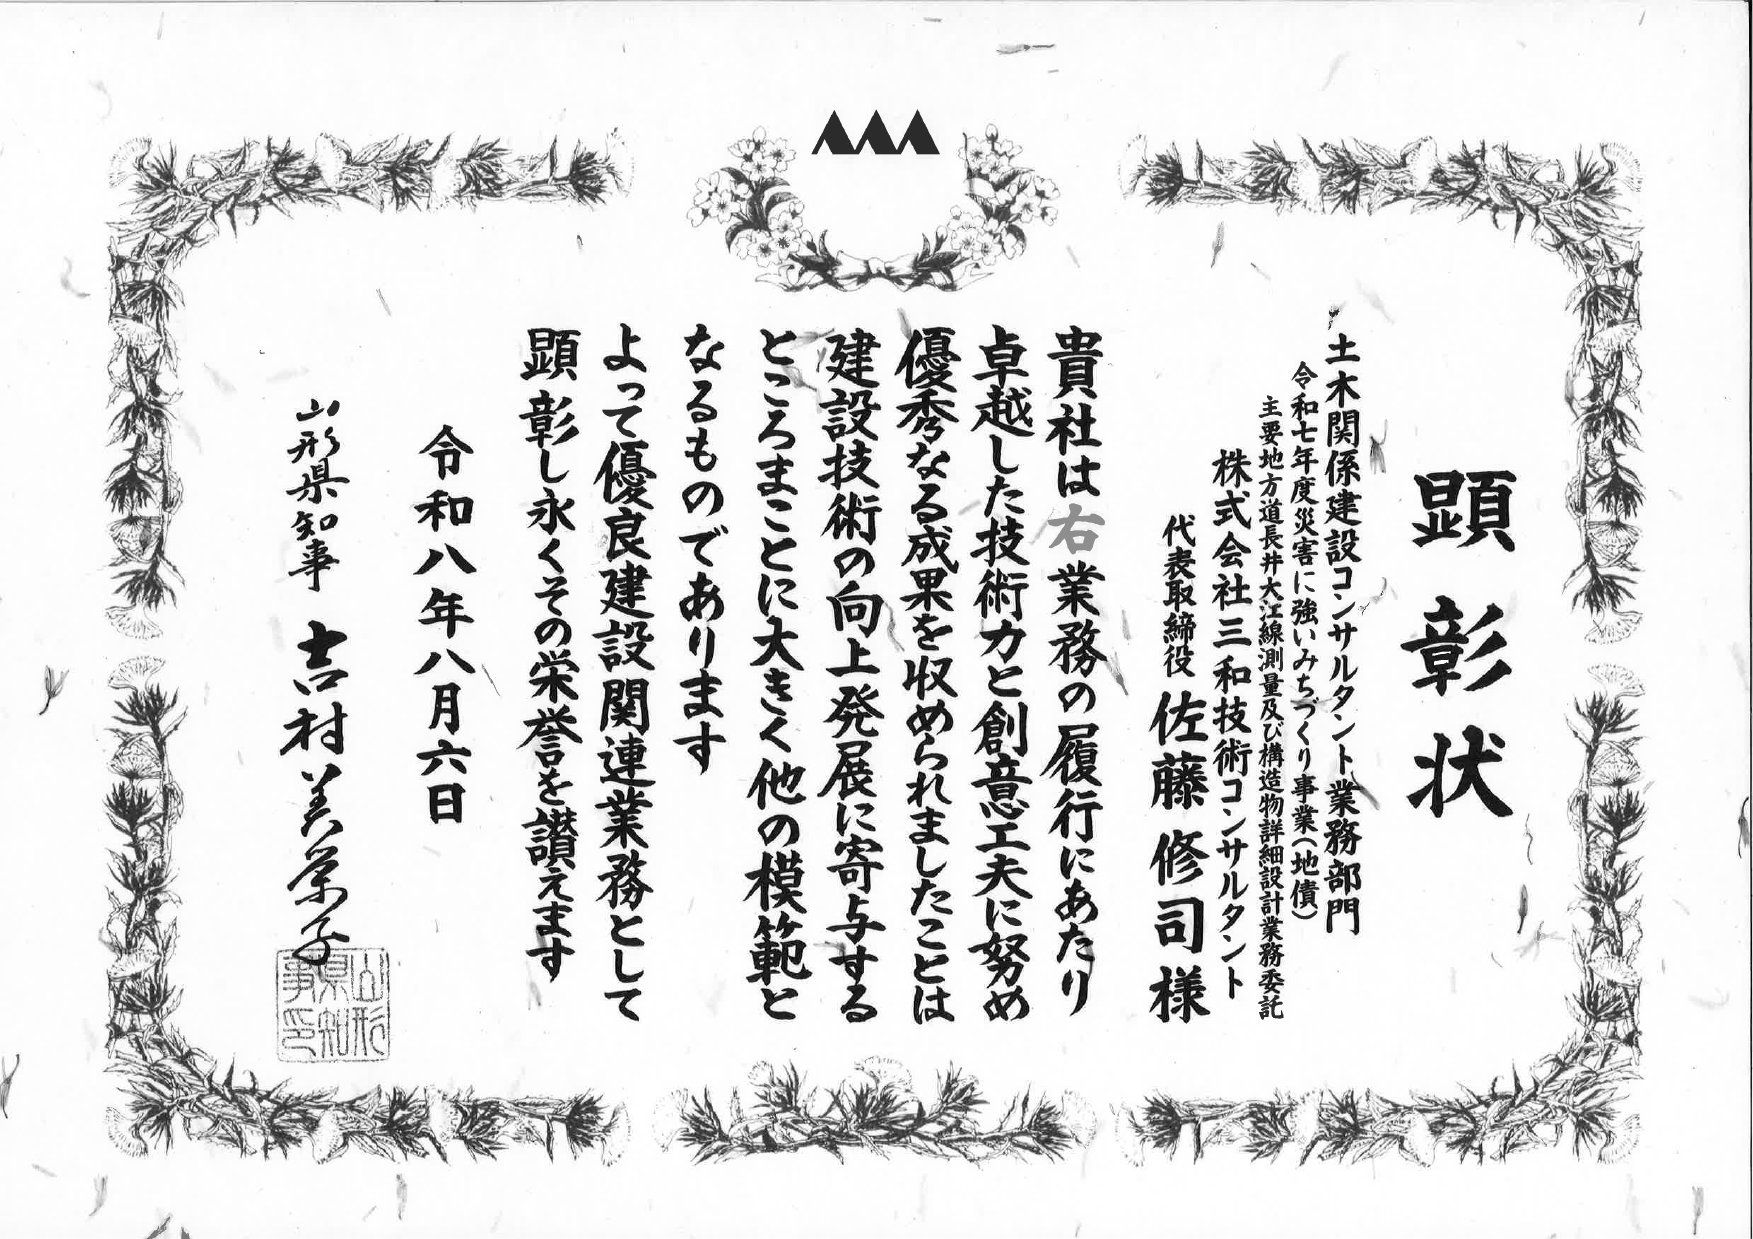 顕彰状
土木関係建設コンサルタント業務部門
令和七年度災害に強いみちづくり事業(地債)
主要地方道長井大江線測量及び構造物詳細設計業務委託
株式会社三和技術コンサルタント
代表取締役 佐藤修司様
貴社は右業務の履行にあたり
卓越した技術力と創意工夫に努め
優秀なる成果を収められましたことは
建設技術の向上発展に寄与する
ところまことに大きく他の模範と
なるものであります
よって優良建設関連業務として
顕彰し永くその栄誉を讃えます
令和八年八月六日
山形県知事 吉村美栄子
山形県知事印